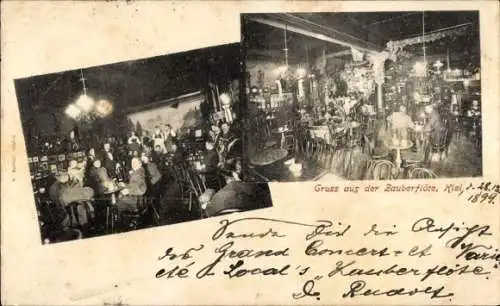 Gruss aus der Zauberflöte, Kiel, d. 28.12.
1899.
Sende Dir die Ansicht
des Grand Concert- et Varie
té Local's "Zauberflöte".
D. Rudolf